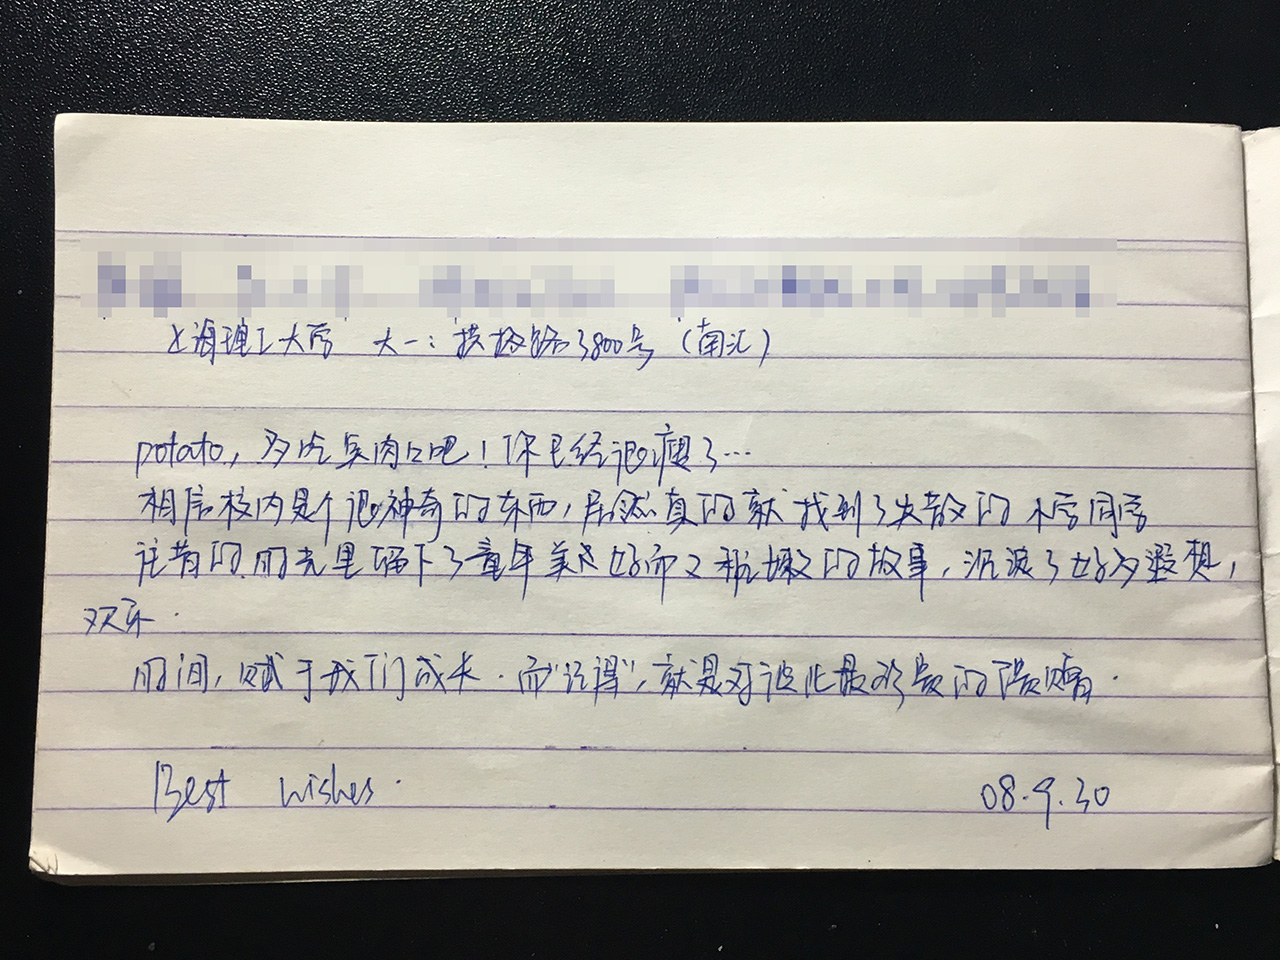 上海理工大学 大一：拱极路3800号（南汇）
potato，多吃点肉肉吧！你已经很瘦了…
相信校内是个很神奇的东西，居然真的就找到了失散的小学同学
往昔的时光里留下了童年美好而又稚嫩的故事，沉淀了好多遐想，
欢乐．
时间，赋于我们成长．而“记得”，就是对彼此最珍贵的馈赠．
Best wishes．
08.9.30